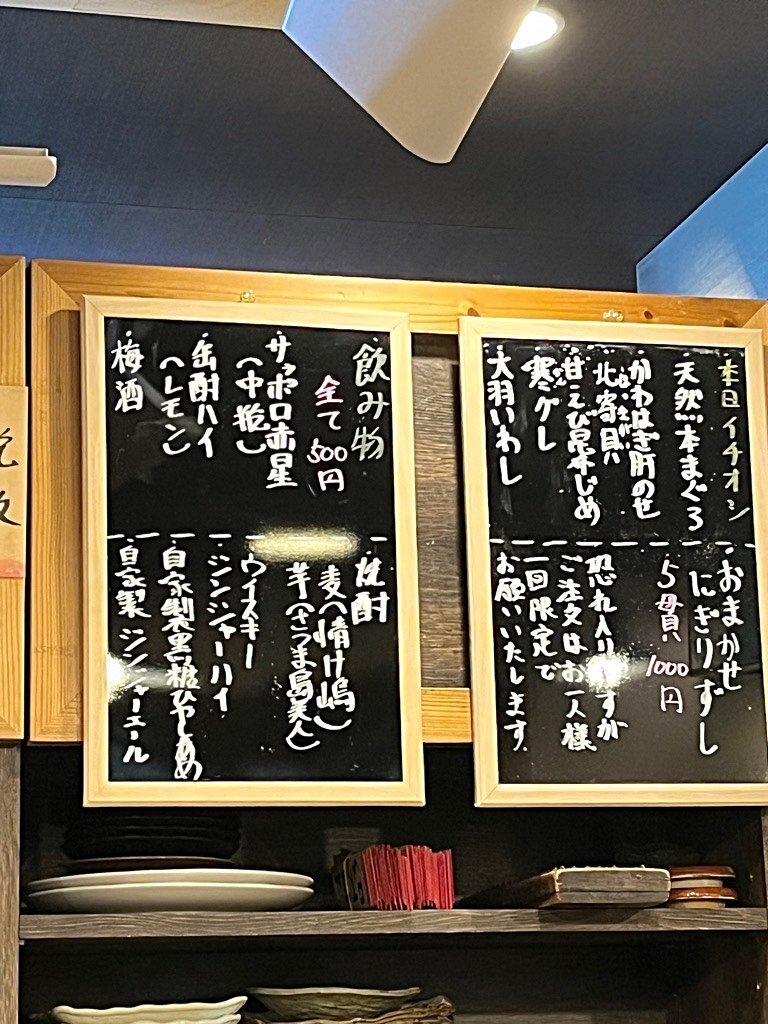 本日イチオシ
天然本まぐろ
かわはぎ肝のせ
北寄貝
甘えび昆布じめ
寒グレ
大羽いわし
おまかせ
にぎりずし
5貫 1000円
恐れ入りますが
ご注文はお一人様
一回限定で
お願いいたします。
飲み物
全て500円
サッポロ赤星
(中瓶)
缶酎ハイ
(レモン)
梅酒
焼酎
麦(情け嶋)
芋(さつま島美人)
ウイスキー
ジンジャーハイ
自家製黒糖ひやしあめ
自家製ジンジャーエール